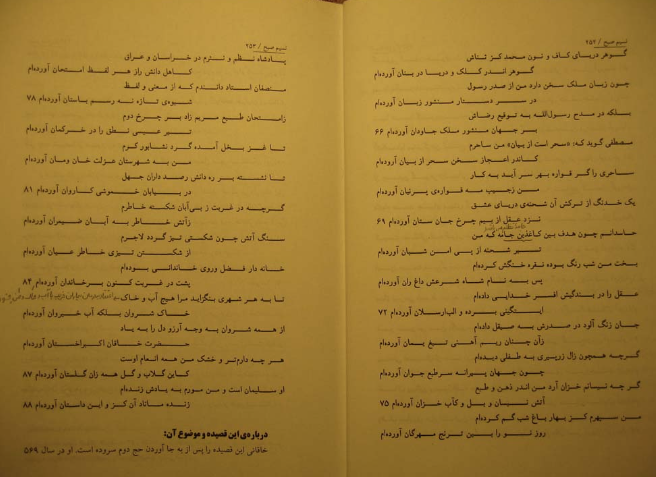 نسیم صبح / ۲۵۲
گوهر دریای کاف و نون محمد کز ثناش
گوهر اندر کلک و دریا در بنان آورده‌ام
چون زبان ملک سخن دارد من از صدر رسول
در سر دستار منشور زبان آورده‌ام
بلکه در مدح رسول‌الله به توقیع رضاش
بر جهان منشور ملک جاودان آورده‌ام ۶۶
مصطفی گوید که: «سحر است از بیان» من ساحرم
کاندر اعجاز سخن سحر از بیان آورده‌ام
ساحری را گر قواره بهر سر آید به کار
من ز جیب مه قواره‌ی پرنیان آورده‌ام
یک خدنگ از ترکش آن شحنه‌ی دریای عشق
نزد عقل از بیم چرخ جان ستان آورده‌ام ۶۹
حاسدانم چون هدف بین کاغذین جامه که من
تیر شحنه از پی امن شبان آورده‌ام
بخت من شب رنگ بوده نقره خنگش کرده‌ام
پس به نام شاه شرعش داغ ران آورده‌ام
عقل را در بندگیش افسر خدایی داده‌ام
ایتگینی برده و الب‌ارسلان آورده‌ام ۷۲
جان زنگ آلود در صدرش به صیقل داده‌ام
زآن چنان ریم آهنی تیغ یمان آورده‌ام
گرچه همچون زال زر پیری به طفلی دیده‌ام
چون جهان پیرانه سر طبع جوان آورده‌ام
گر چه نیسانم خزان آرد من اندر ذهن و طبع
آتش نیسان و بل و کآب خزان آورده‌ام ۷۵
من سپهرم کز بهار باغ شب گم کرده‌ام
روز نو را بین ترنج مهرگان آورده‌ام
نسیم صبح / ۲۵۳
پادشاه نظم و نثرم در خراسان و عراق
کاهل دانش راز هر لفظ امتحان آورده‌ام
منصفان استاد دانندم که از معنی و لفظ
شیوه‌ی تازه نه رسم باستان آورده‌ام ۷۸
زامتحان طبع مریم زاد بر چرخ دوم
تیر عیسی نطق را در خرکمان آورده‌ام
تا غز بخل آمده گرد نشابور کرم
من به شهرستان عزلت خان ومان آورده‌ام
تا نشسته بر ره دانش رصد داران جهل
در بیابان خموشی کاروان آورده‌ام ۸۱
گرچه در غربت ز بی‌آبان شکسته خاطرم
زآتش خاطر به آبان ضیمران آورده‌ام
سنگ آتش چون شکستی تیز گردد لاجرم
از شکستن تیزی خاطر عیان آورده‌ام
خانه دار فضل و روی خاندانی بوده‌ام
پشت در غربت کنون بر خاندان آورده‌ام ۸۴
تا به هر شهری بنگزاید مرا هیچ آب و خاک
خاک شروان بلکه آب خیروان آورده‌ام
از همه شروان به وجه آرزو دل را به یاد
حضرت خاقان اکبراخستان آورده‌ام
هر چه دارم تر و خشک من همه انعام اوست
کاین گلاب و گل همه زان گلستان آورده‌ام ۸۷
او سلیمان است و من مورم به یادش زنده‌ام
زنده ماناد آن کز او این داستان آورده‌ام ۸۸
درباره‌ی این قصیده و موضوع آن:
خاقانی این قصیده را پس از به جا آوردن حج دوم سروده است. او در سال ۵۶۹